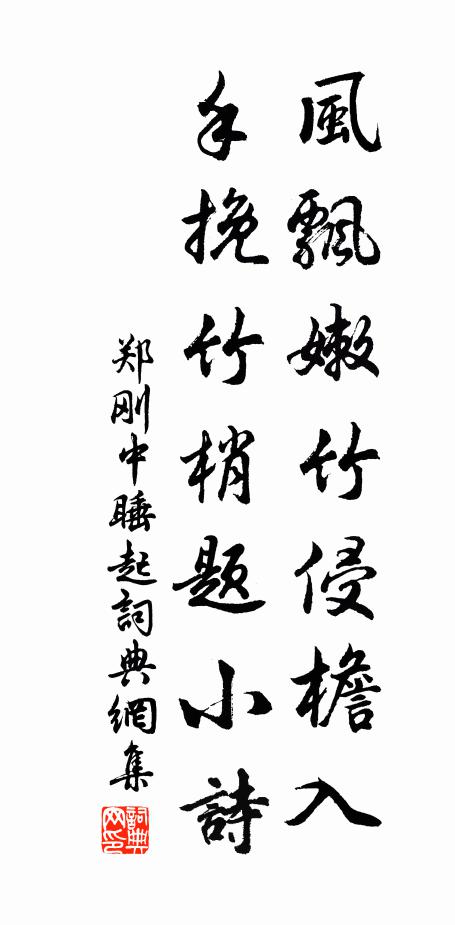 風飄嫩竹侵檐入
手挽竹梢题小詩
郑刚中睡起詞典網集
詞典网印